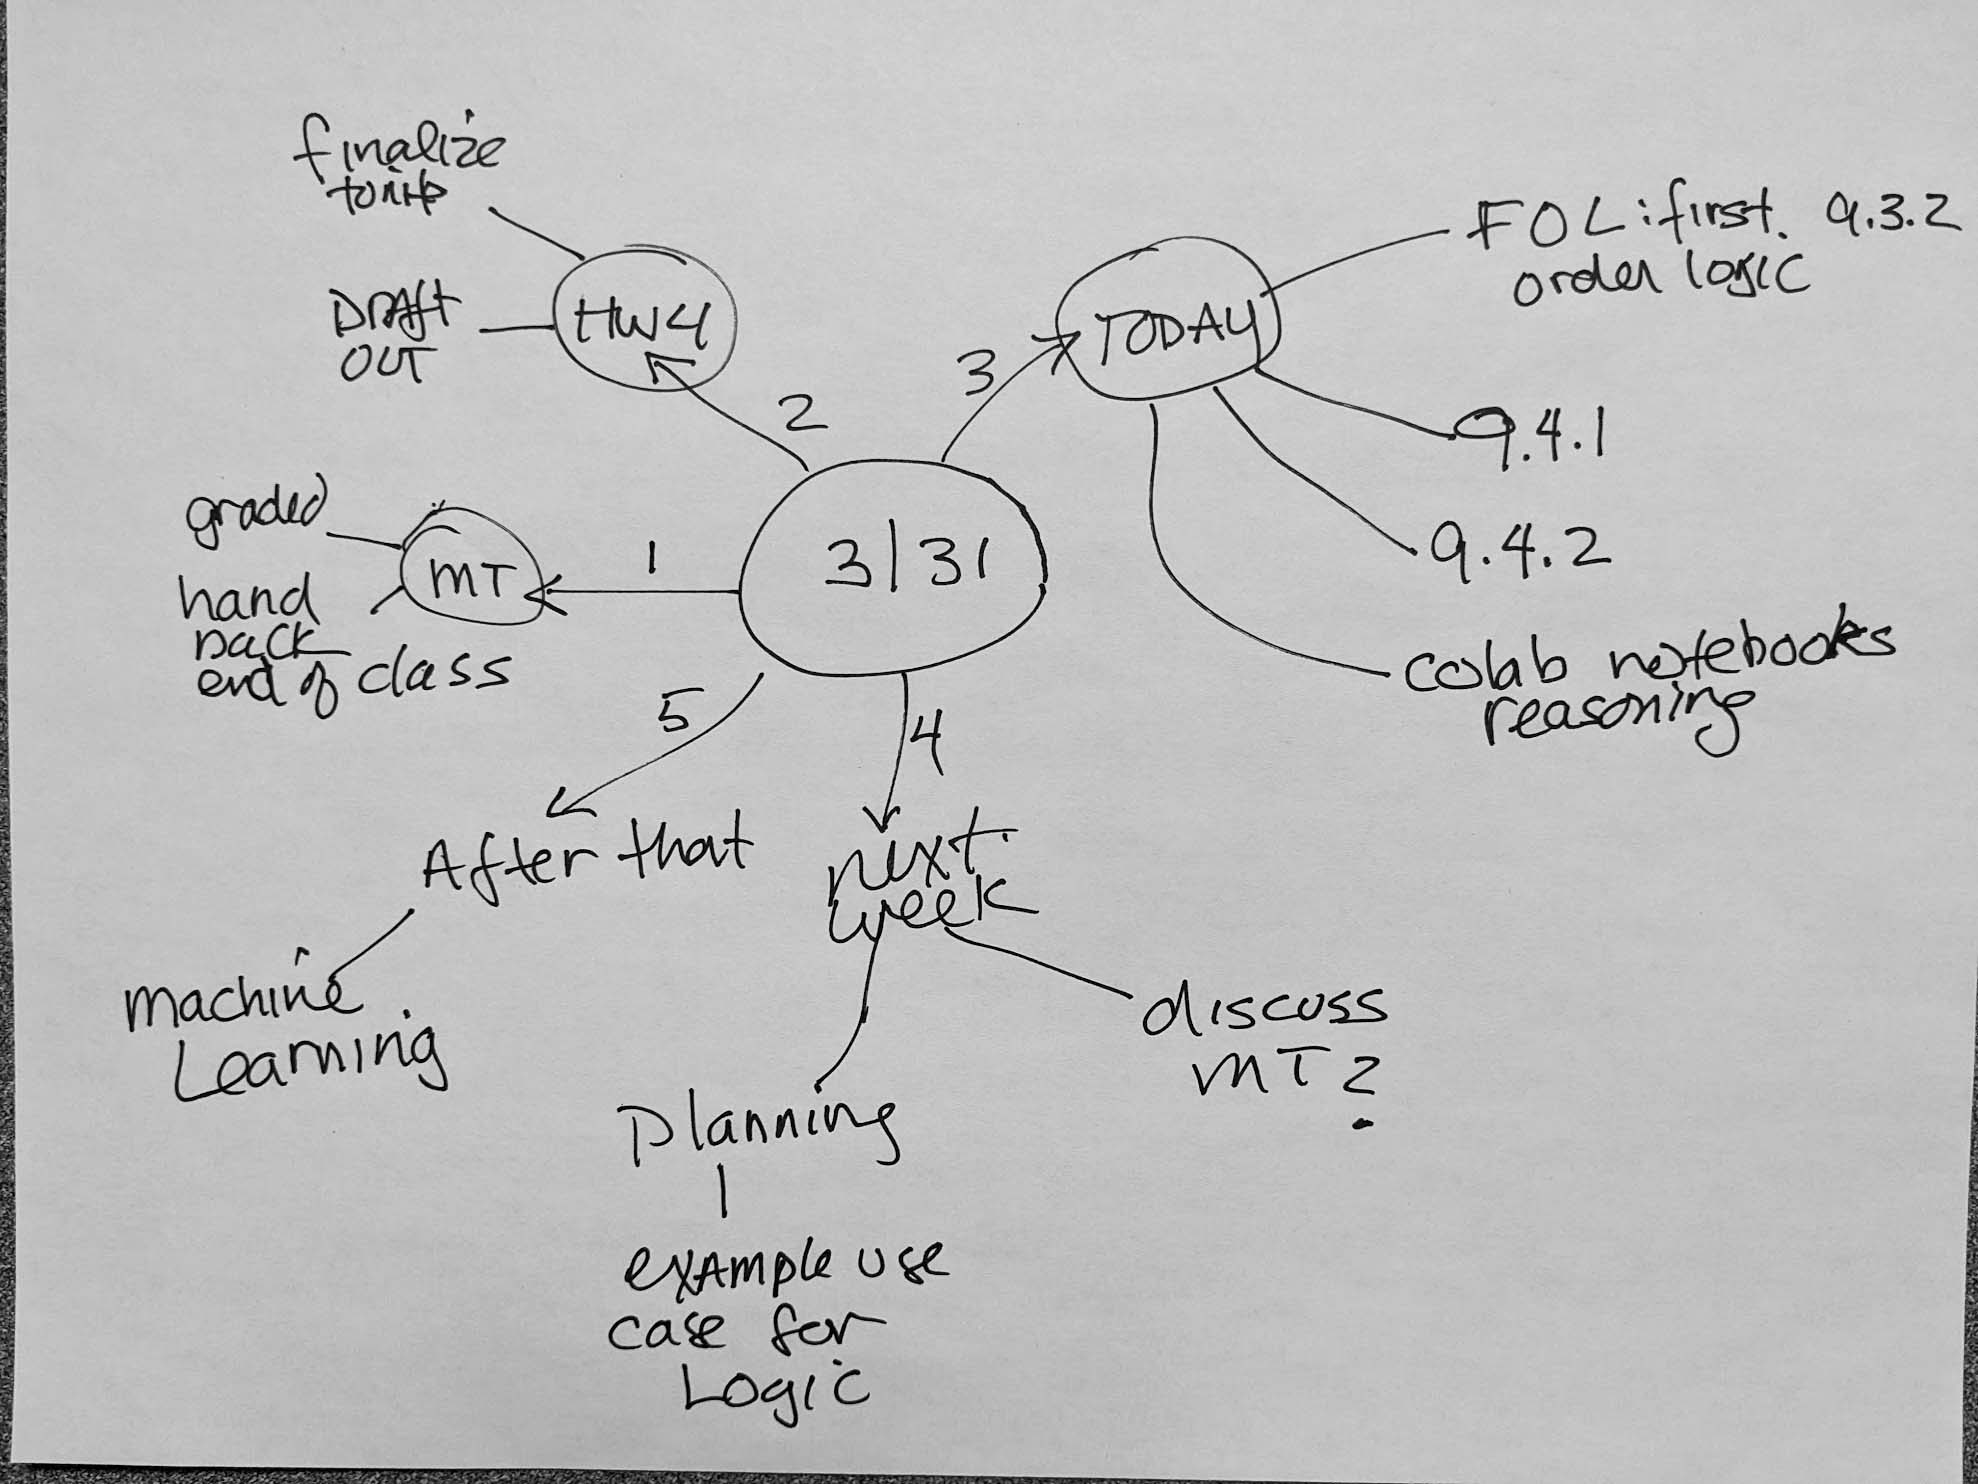 finalize
tonite
DRAft
OUT
HW4
2
graded
MT
hand
back
end of class
1
3/31
3
TODAY
FOL: first. 9.3.2
order logic
9.4.1
9.4.2
colab notebooks
reasoning
5
After that
machine
Learning
4
next
week
discuss
MT?
Planning
example use
case for
Logic